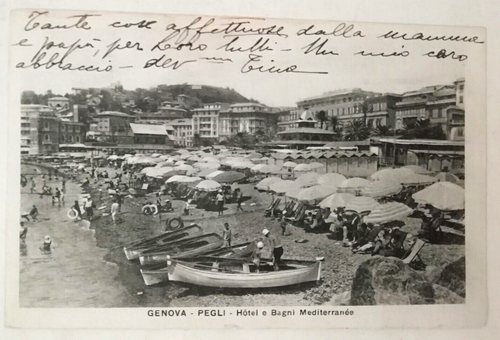 Tante cose affettuose dalla mamma
e papà, per Loro tutti - Un mio caro
abbraccio - dev Tina
GENOVA - PEGLI - Hôtel e Bagni Mediterranée